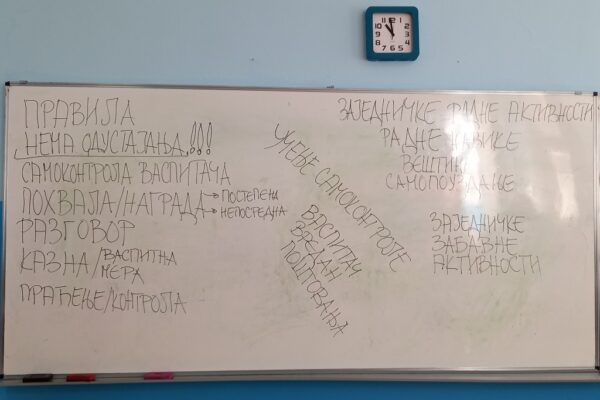 ПРАВИЛА
НЕМА ОДУСТАЈАЊА!!!
САМОКОНТРОЛА ВАСПИТАЧА
ПОХВАЛА/НАГРАДА → ПОСТЕПЕНА
→ НЕПОСРЕДНА
РАЗГОВОР
КАЗНА/ВАСПИТНА
МЕРА
ПРАЋЕЊЕ/КОНТРОЛА
УЧЕЊЕ САМОКОНТРОЛЕ
ВАСПИТАЧ
ВРЕДАН
ПОШТОВАЊА
ЗАЈЕДНИЧКЕ РАДНЕ АКТИВНОСТИ
РАДНЕ НАВИКЕ
ВЕШТИНЕ
САМОПОУЗДАЊЕ
ЗАЈЕДНИЧКЕ
ЗАБАВНЕ
АКТИВНОСТИ
12
11
10
9
8
7 6 5
4
3
2
1